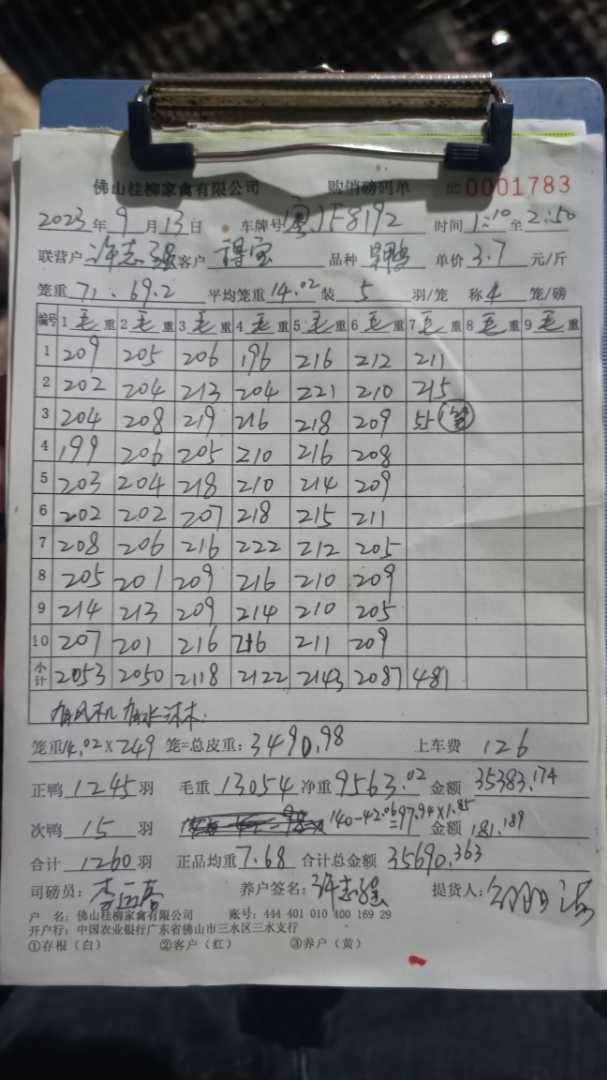 佛山桂柳家禽有限公司 购销磅码单 NO 0001783
2023年9月13日 车牌号(粤)JF8192 时间1:10至2:50
联营户 许志强 客户 得宝 品种 单价3.7元/斤
笼重71.69.2 平均笼重14.02 装5羽/笼 称4笼/磅
编号 1毛重 2毛重 3毛重 4毛重 5毛重 6毛重 7毛重 8毛重 9毛重
1 209 205 206 196 216 212 211
2 202 204 213 204 221 210 215
3 204 208 219 216 218 209 55
4 199 206 205 210 216 208
5 203 204 218 210 214 209
6 202 202 207 218 215 211
7 208 206 216 222 212 205
8 205 201 209 216 210 209
9 214 213 209 214 210 205
10 207 201 216 216 211 209
小计 2053 2050 2118 2122 2143 2087 481
有风机有水
笼重14.02X249笼=总皮重:3490.98 上车费 126
正鸭1245羽 毛重13054净重9563.02金额35383.174
次鸭15羽 140-42.06=97.94×1.85 金额181.189
合计1260羽 正品均重7.68 合计总金额35690.363
司磅员: 养户签名:许志强 提货人:
户 名:佛山桂柳家禽有限公司 账号:444 401 010 400 169 29
开户行:中国农业银行广东省佛山市三水区三水支行
①存根(白) ②客户(红) ③养户(黄)